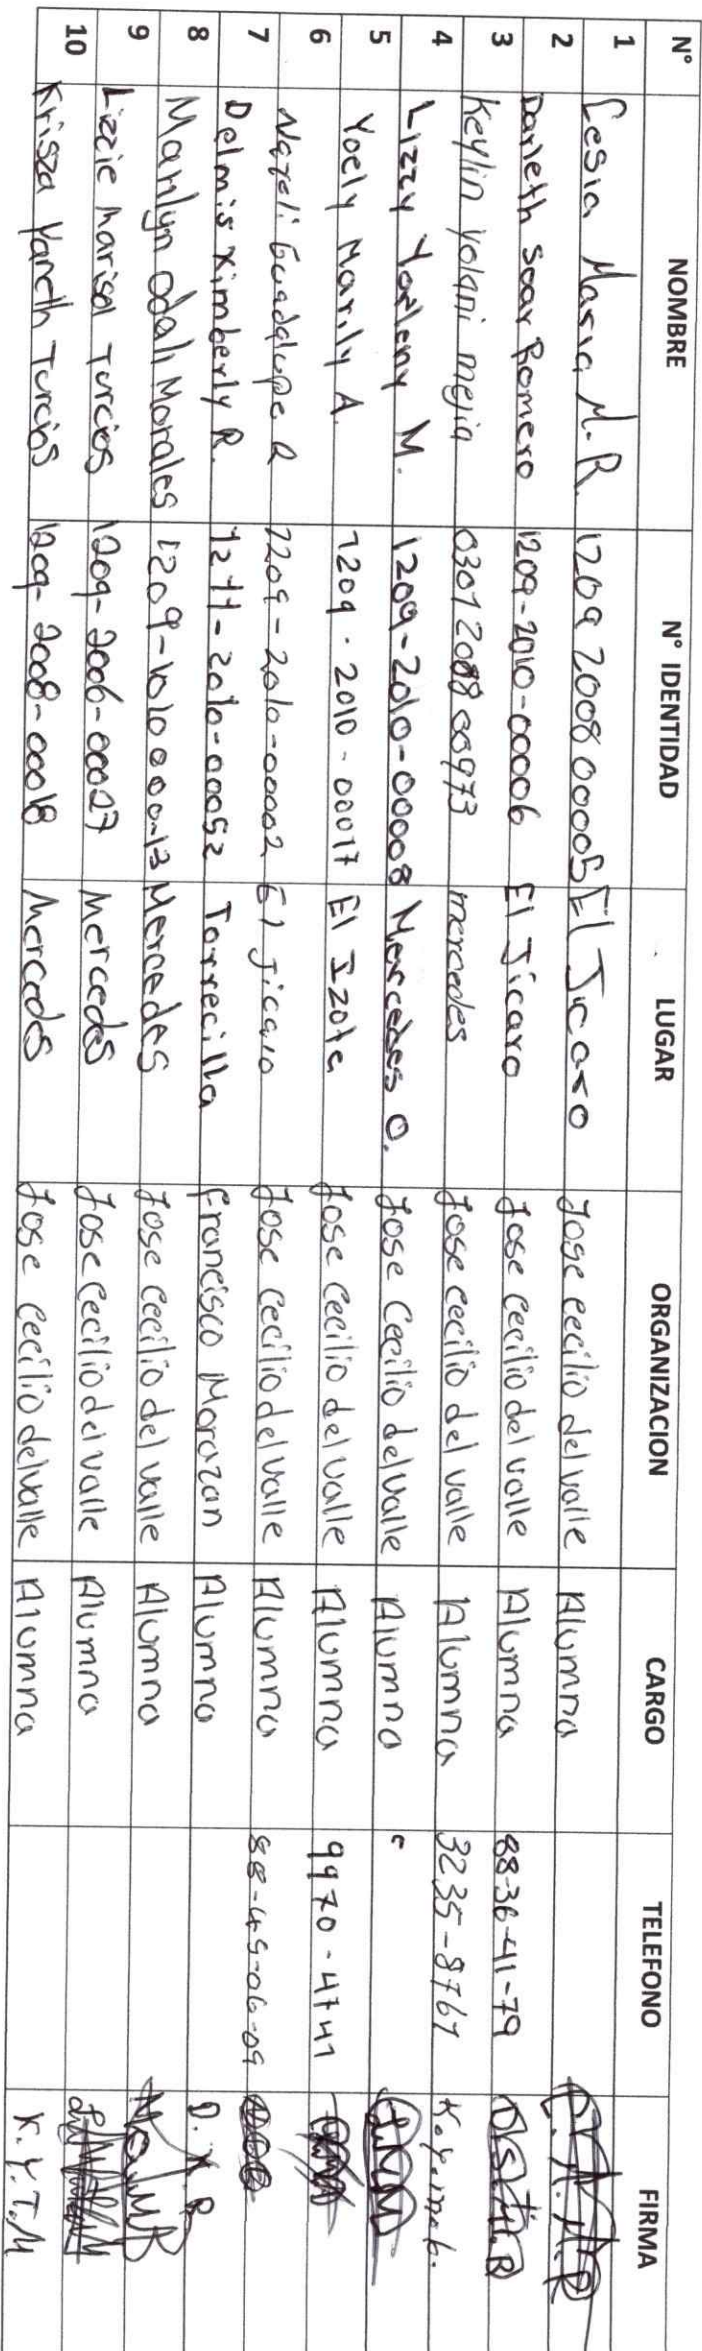 N° NOMBRE N° IDENTIDAD LUGAR ORGANIZACION CARGO TELEFONO FIRMA
1 Cesia Maria M.R. 1209 2008 00005 El Jicaro Jose cecilio del valle Alumna
2 Darieth Romero 1209-2010-00006 El Jicaro Jose cecilio del valle Alumna 88-36-41-79
3 Keylin yolani mejia 0301 2008 00973 mercedes Jose cecilio del valle Alumna 3235-8767
4 Lizzy M. 1209-2010-00008 Mercedes O. Jose Cecilio del valle Alumna
5 Yoely Marily A. 1209-2010-00017 El Izote Jose Cecilio del valle Alumna 9970-4741
6 Nazeli Guadalupe R 1209-2010-00002 El Jicaro Jose Cecilio del valle Alumna 88-45-06-09
7 Delmis Kimberly R. 1211-2010-00052 Torrecilla Francisco Morazan Alumna
8 Marilyn Odali Morales Mercedes Jose cecilio del valle Alumna
9 Lizzie Marisol Turcios 1209-2006-00027 Mercedes Jose Cecilio del valle Alumna
10 Krisza Yareth Turcios 1209-2008-00018 Mercedes Jose Cecilio del valle Alumna K.Y.T.M